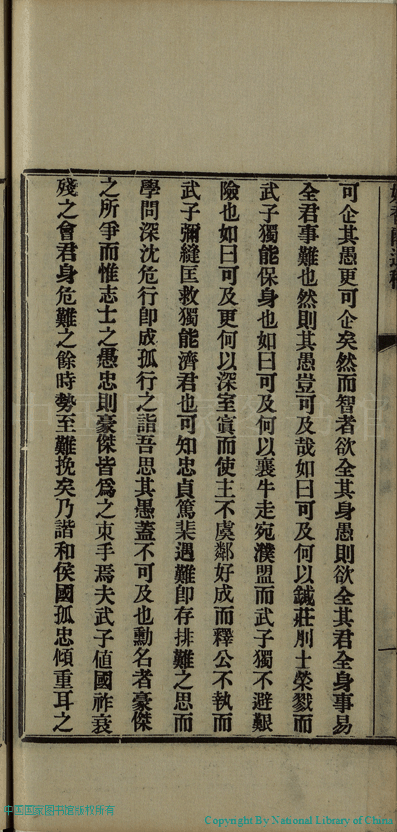 可企其愚更可企矣然而智者欲全其身愚則欲全其君全身事易
全君事難也然則其愚豈可及哉如曰可及何以鍼莊刖士榮戮而
武子獨能保身也如曰可及何以襄牛走宛濮盟而武子獨不避艱
險也如曰可及更何以深室寘而使主不虞鄰好成而釋公不執而
武子彌縫匡救獨能濟君也可知忠貞篤棐遇難卽存排難之思而
學問深沈危行卽成孤行之詣吾思其愚蓋不可及也勳名者豪傑
之所爭而惟志士之愚忠則豪傑皆爲之束手焉夫武子値國祚衰
殘之會君身危難之餘時勢至難挽矣乃諧和侯國孤忠傾重耳之
中国国家图书馆版权所有
Copyright By National Library of China